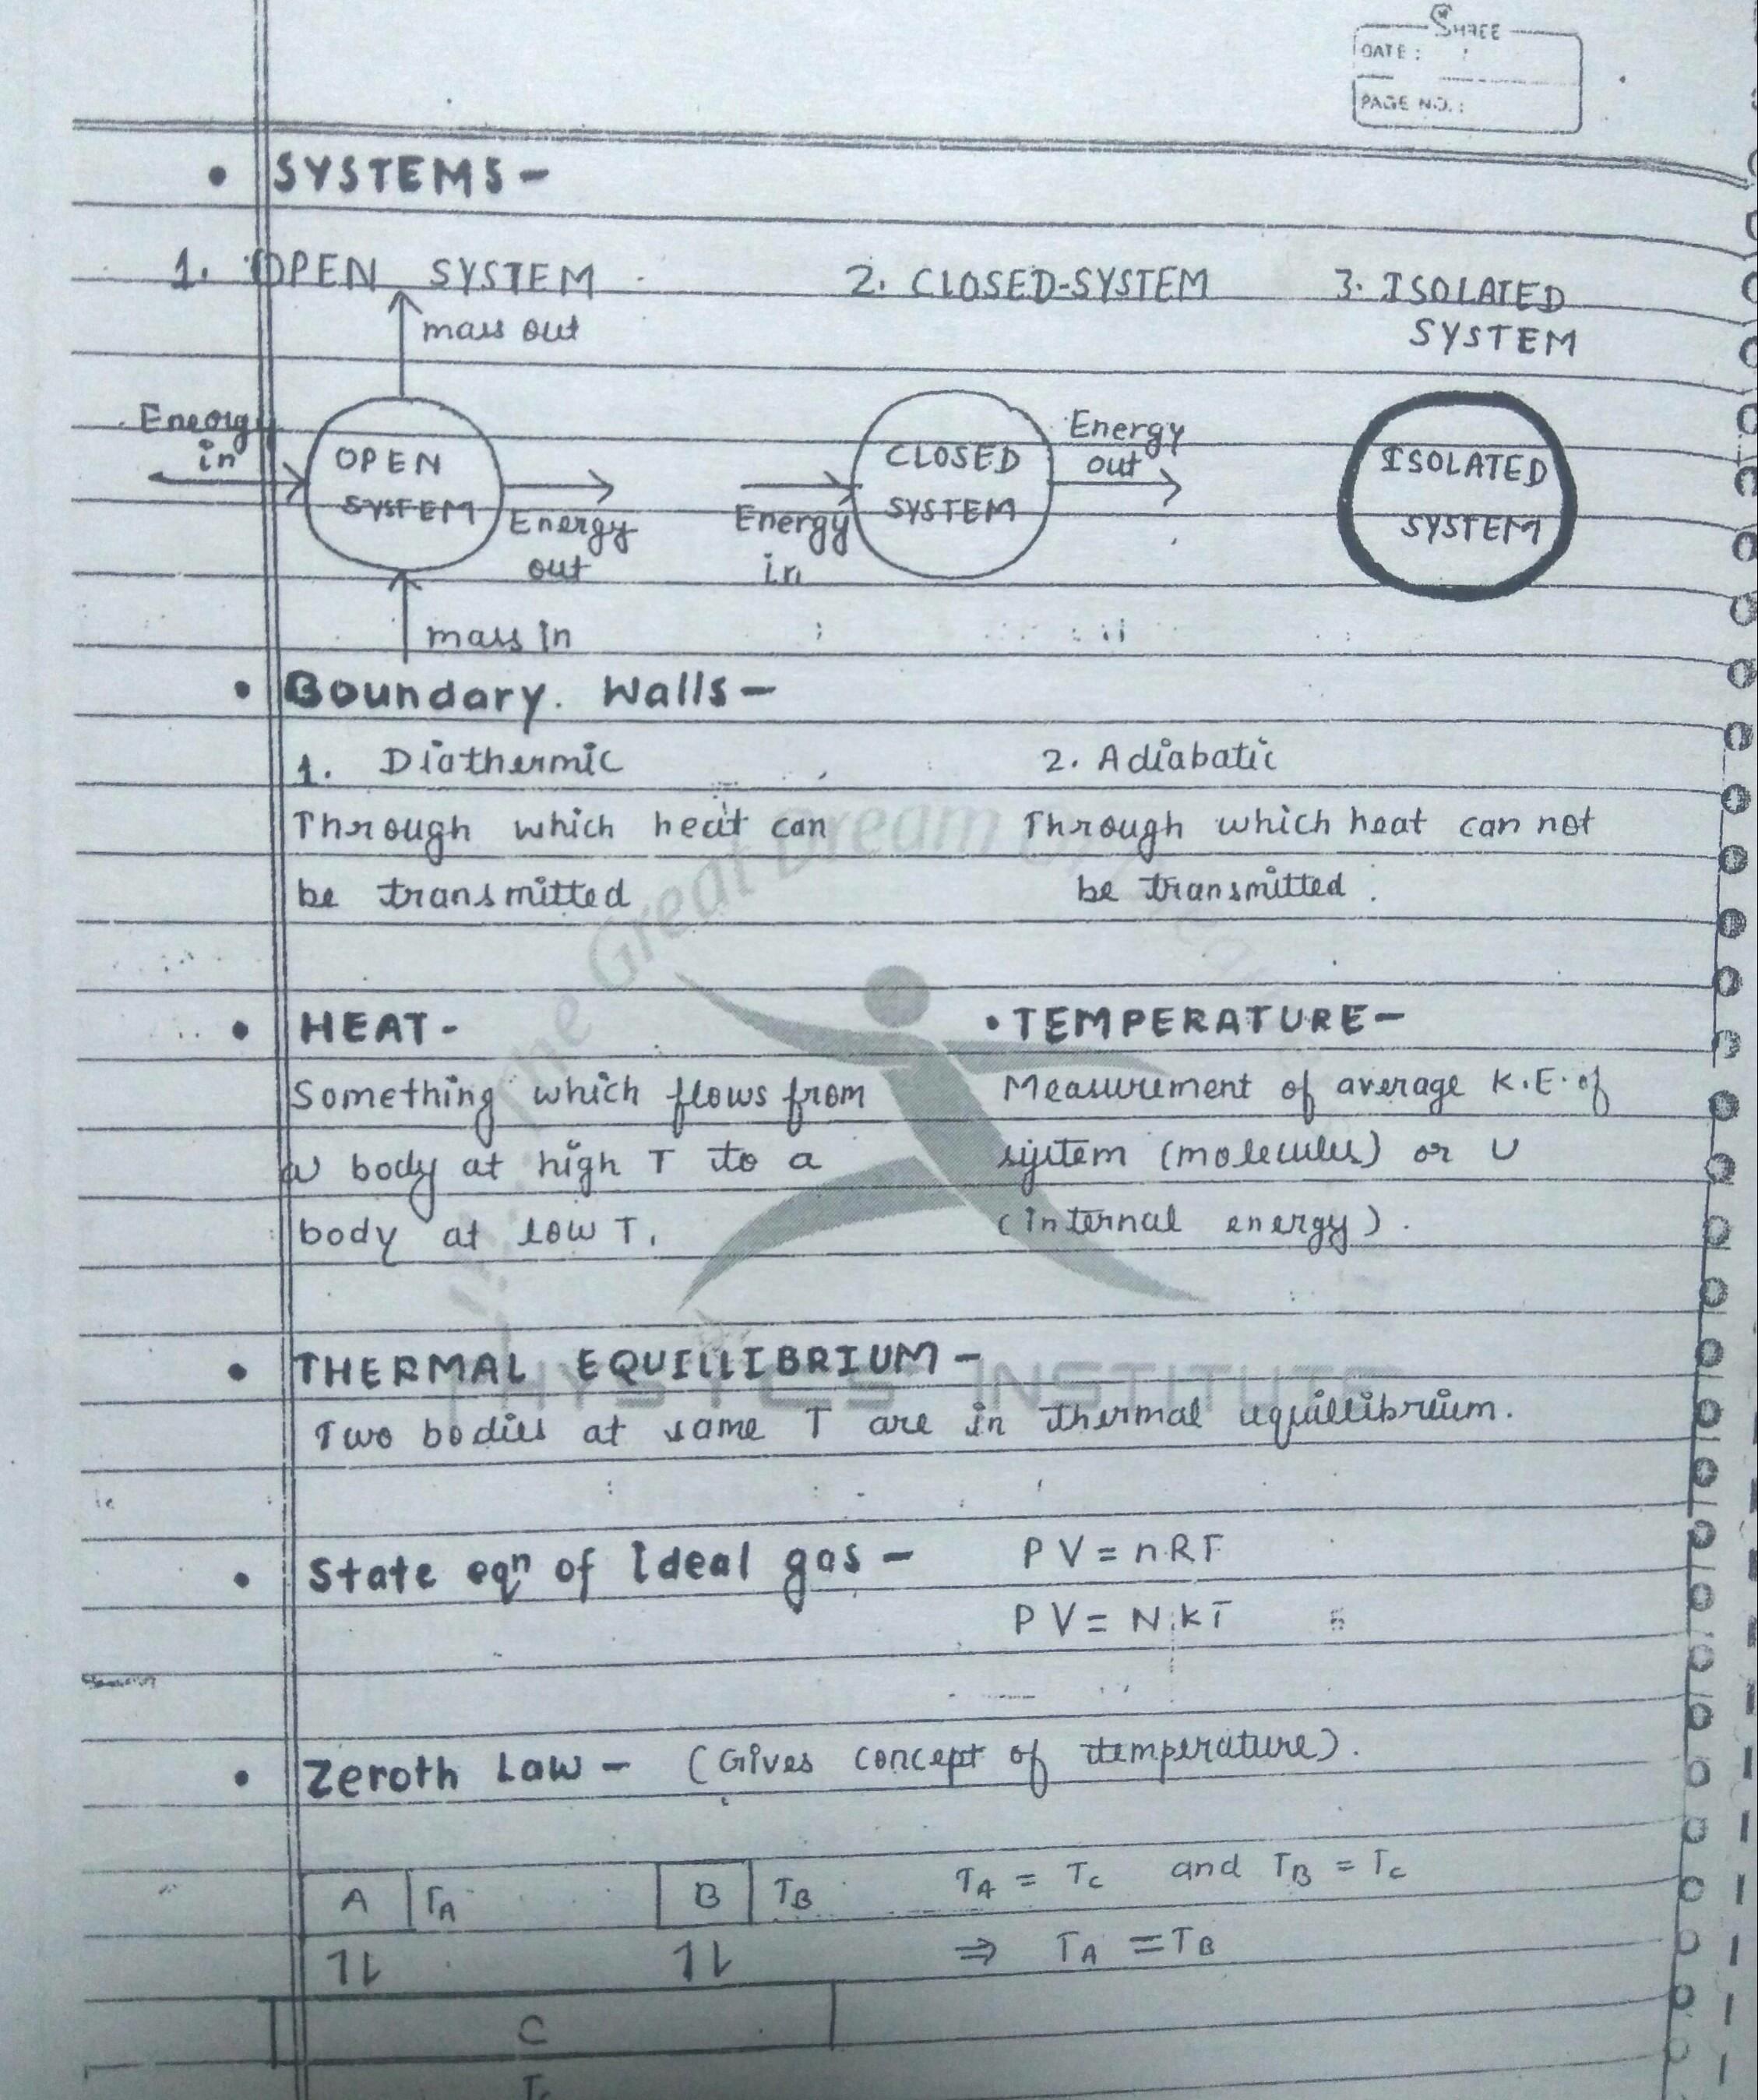 SHREE
DATE :
PAGE NO. :
• SYSTEMS -
1. OPEN SYSTEM 2. CLOSED-SYSTEM 3. ISOLATED
SYSTEM
mass out
Energy
in
OPEN
SYSTEM
Energy
out
mass in
Energy
in
CLOSED
SYSTEM
Energy
out
ISOLATED
SYSTEM
• Boundary. Walls -
1. Diathermic 2. Adiabatic
Through which heat can Through which heat can not
be transmitted be transmitted.
The Great Dream
• HEAT - • TEMPERATURE -
Something which flows from Measurement of average K.E. of
a body at high T to a system (molecules) or U
body at low T. (internal energy).
• THERMAL EQUILLIBRIUM -
PHYSICS INSTITUTE
Two bodies at same T are in thermal equillibrium.
• State eqⁿ of Ideal gas - PV = nRT
PV = NkT
• Zeroth Law - (Gives concept of temperature).
A T_A B T_B T_A = T_C and T_B = T_C
1L 1L ⇒ T_A = T_B
C